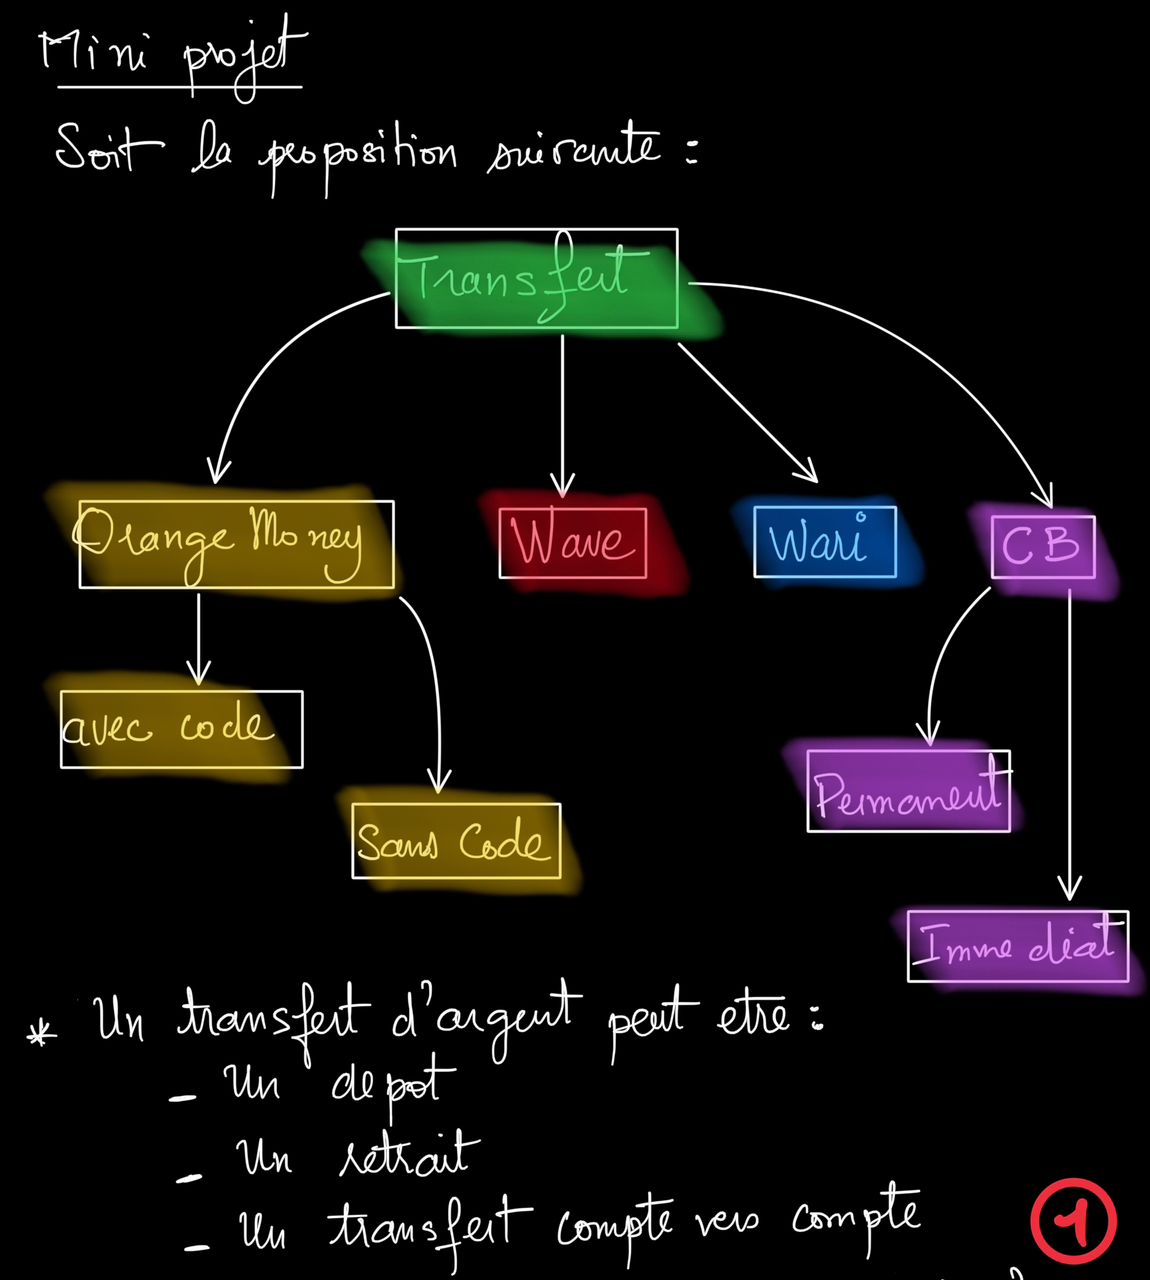 Mini projet
Soit la proposition suivante :
Transfert
Orange Money
Wave
Wari
CB
avec code
Permanent
Sans Code
Immediat
* Un transfert d'argent peut etre :
- Un depot
- Un retrait
- Un transfert compte vers compte
1